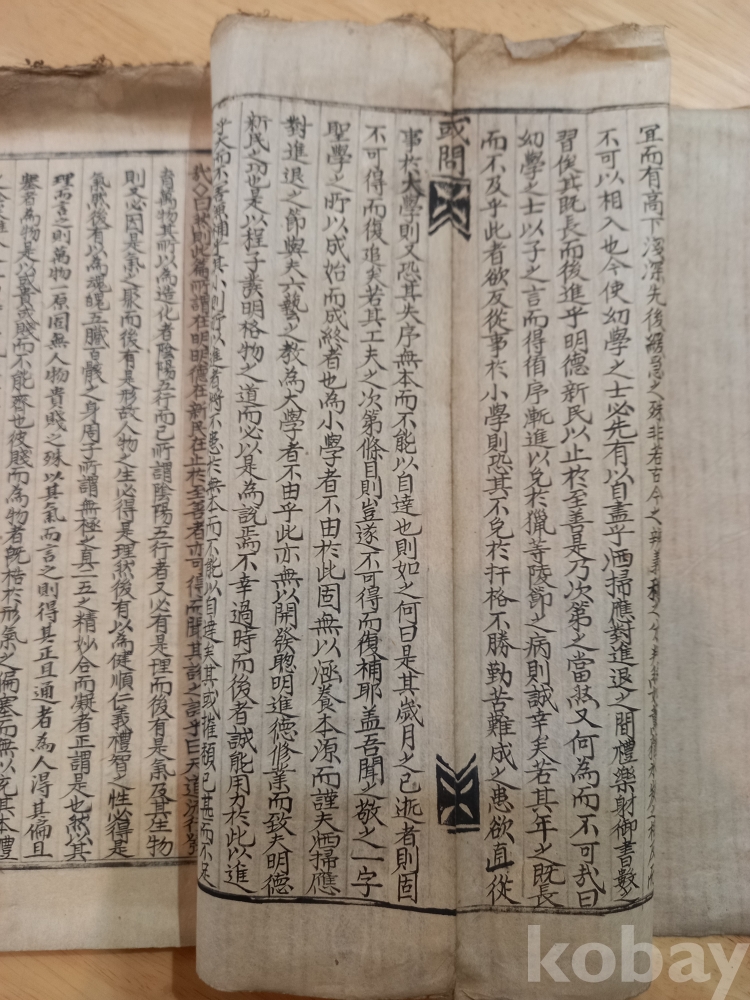 冝而有高下淺深先後緩急之殊非若古今之辨義利之分判然
不可以相入也今使幼學之士必先有以自盡乎洒掃應對進退之間禮樂射御書數之
習俟其既長而後進乎明德新民以止於至善是乃次第之當然又何為而不可哉曰
幼學之士以子之言而得循序漸進以免於獵等陵節之病則誠幸矣若其年之既長
而不及乎此者欲反從事於小學則恐其不免於扞格不勝勤苦難成之患欲直從
或問
事於大學則又恐其失序無本而不能以自達也則如之何曰是其歲月之已逝者則固
不可得而復追矣若其工夫之次第條目則豈遂不可得而復補耶盖吾聞之敬之一字
聖學之所以成始而成終者也為小學者不由於此固無以涵養本源而謹夫洒掃應
對進退之節與夫六藝之教為大學者不由乎此亦無以開發聰明進德修業而致夫明德
新民之功也是以程子發明格物之道而必以是為說焉不幸過時而後者誠能用力於此以進
乎大而不害兼補乎其小則所以進者將不患於無本而不能以自達矣其或摧頹已甚而不足
哉曰然則此篇所謂在明明德在新民在止於至善者亦可得而聞其說之詳乎曰天道流行發
育萬物其所以為造化者陰陽五行而已所謂陰陽五行者又必有是理而後有是氣及其生物
則又必因是氣之聚而後有是形故人物之生必得是理然後有以為健順仁義禮智之性必得是
氣然後有以為魂魄五臟百骸之身周子所謂無極之真二五之精妙合而凝者正謂是也然以其
理而言之則萬物一原固無人物貴賤之殊以其氣而言之則得其正且通者為人得其偏且
塞者為物是以或貴或賤而不能齊也彼賤而為物者既梏於形氣之偏塞而無以充其本體
kobay